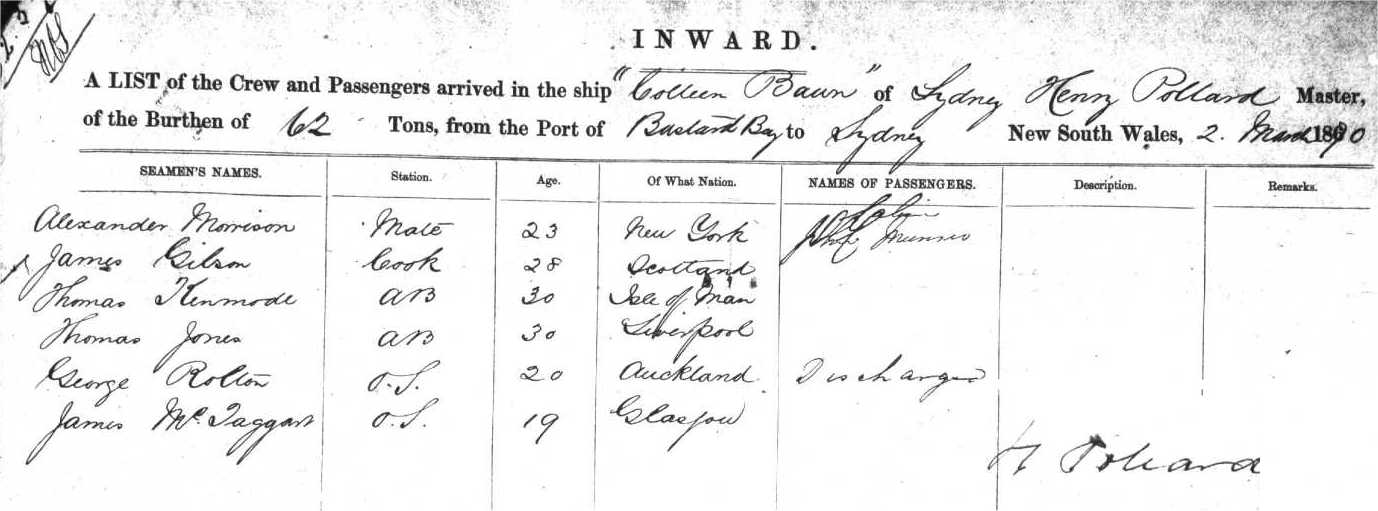 INWARD.
A LIST of the Crew and Passengers arrived in the ship "Colleen Bawn" of Sydney Henry Pollard Master,
of the Burthen of 62 Tons, from the Port of Bustard Bay to Sydney New South Wales, 2. March 1870
SEAMEN'S NAMES. Station. Age. Of What Nation. NAMES OF PASSENGERS. Description. Remarks.
Alexander Morrison Mate 23 New York Munro
James Gibson Cook 28 Scotland
Thomas Kenmode AB 30 Isle of Man
Thomas Jones AB 30 Liverpool
George Rolton O.S. 20 Auckland Discharged
James McTaggart O.S. 19 Glasgow
H Pollard